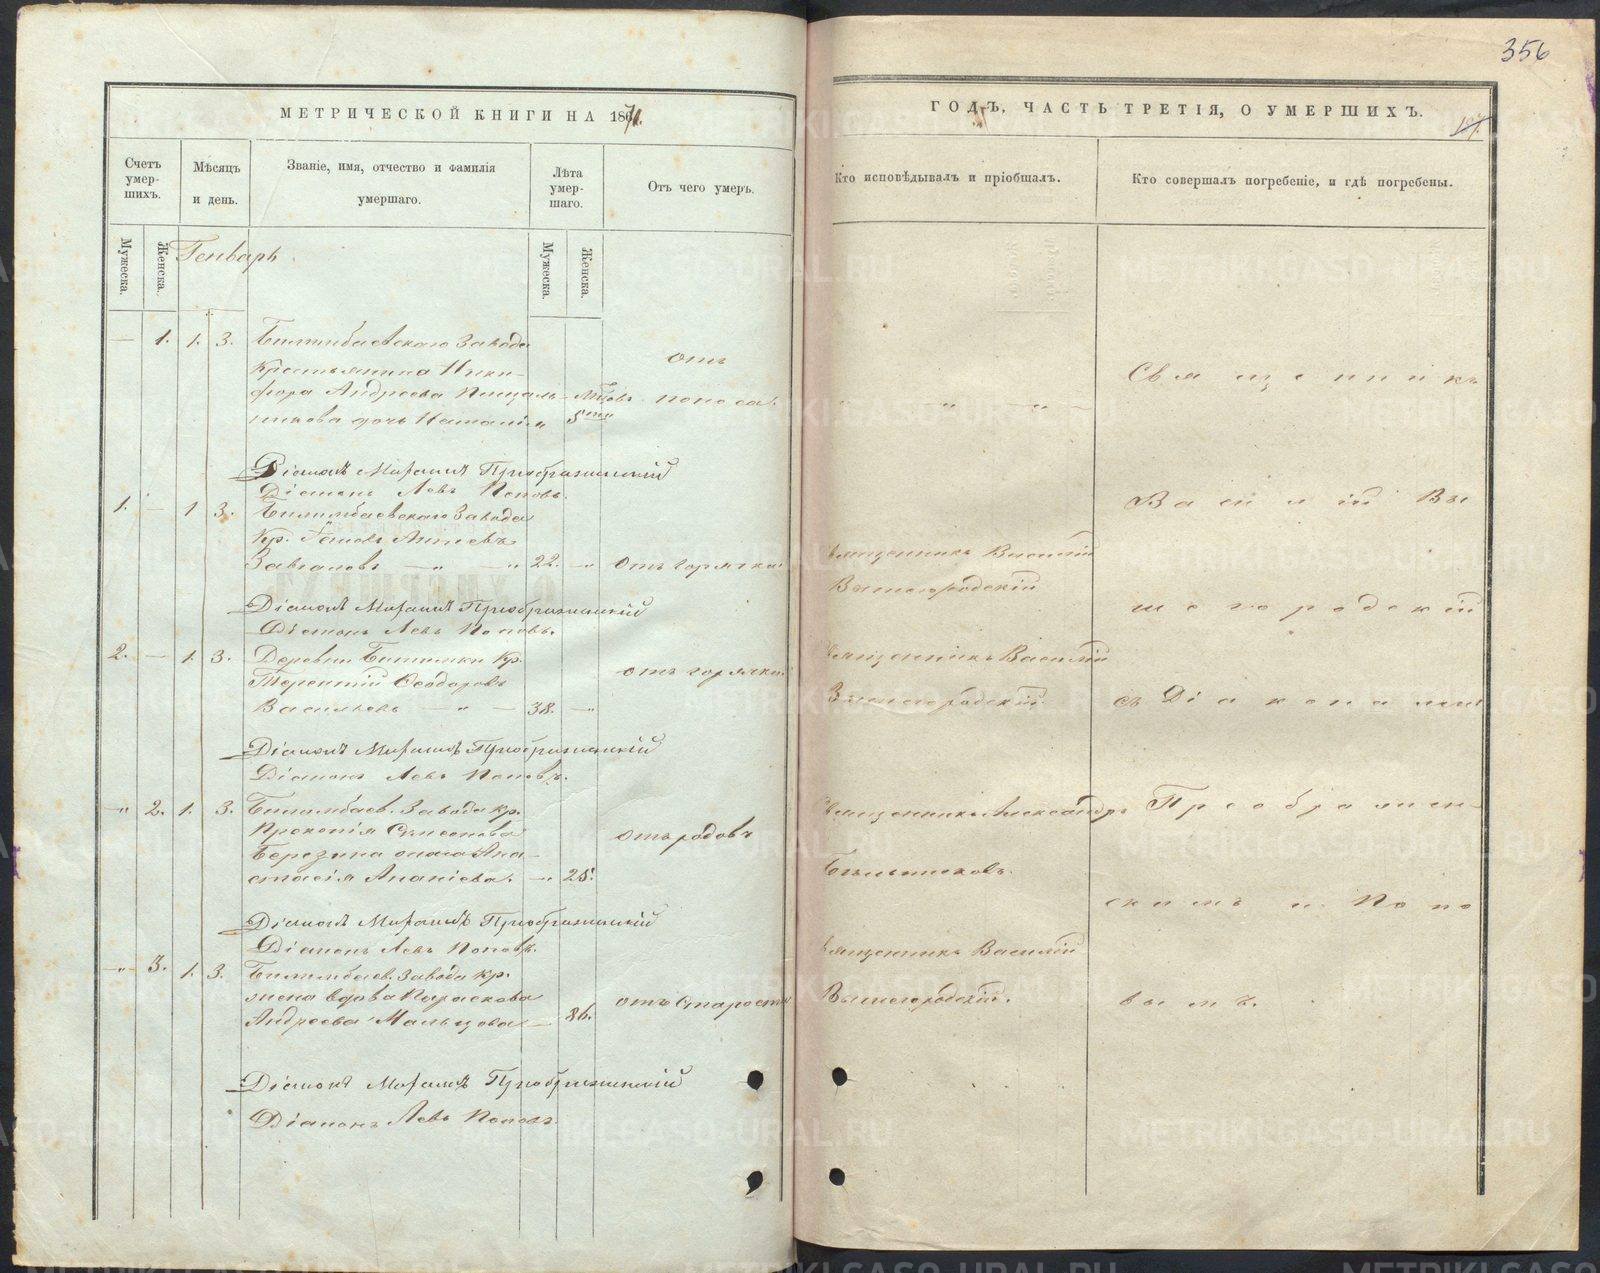 356
МЕТРИЧЕСКОЙ КНИГИ НА 1871.
ГОДЪ, ЧАСТЬ ТРЕТІЯ, О УМЕРШИХЪ.
Счетъ умер- шихъ.
Мѣсяцъ и день.
Званіе, имя, отчество и фамилія умершаго.
Лѣта умер- шаго.
Отъ чего умеръ.
Кто исповѣдывалъ и пріобщалъ.
Кто совершалъ погребеніе, и гдѣ погребены.
Мужеска.
Женска.
Мужеска.
Женска.
Генварь
— 1. 1. 3. Билимбаевскаго Завода
Крестьянина Ники-
фора Андреева Пищаль-
никова дочь Наталія
Мѣсяцовъ
5ти
отъ
поноса.
" "
Діаконъ Михаилъ Преображенскій
Діаконъ Левъ Поповъ.
1. — 1 3. Билимбаевскаго Завода
Кр.
— " — " 22. — " отъ горячки
Священникъ Василій
Вышегородскій
Діаконъ Михаилъ Преображенскій
Діаконъ Левъ Поповъ.
2. — 1. 3. Деревни Битимки Кр.
Терентій Ѳеодоровъ
Васильевъ — " — 38. — " отъ горячки
Священникъ Василій
Вышегородскій.
Діаконъ Михаилъ Преображенскій
Діаконъ Левъ Поповъ.
" 2. 1. 3. Билимбаев. Завода Кр.
Прокопія
Березина жена Ана-
стасія Ананіева. — 25. отъ родовъ
Священникъ Александръ
Діаконъ Михаилъ Преображенскій
Діаконъ Левъ Поповъ.
" 3. 1. 3. Билимбаев. Завода Кр.
жена вдова Параскева
Андреева Мальцова — 86. отъ Старости
Священникъ Василій
Вышегородскій.
Діаконъ Михаилъ Преображенскій
Діаконъ Левъ Поповъ.
Священникъ
Василій Вы
шегородскій
съ Діаконами
Преображен-
скимъ и Попо
вымъ.
METRIKI.GASO-URAL.RU